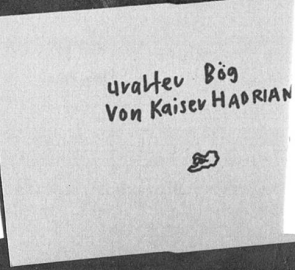 uralter Bög
von Kaiser HADRIAN